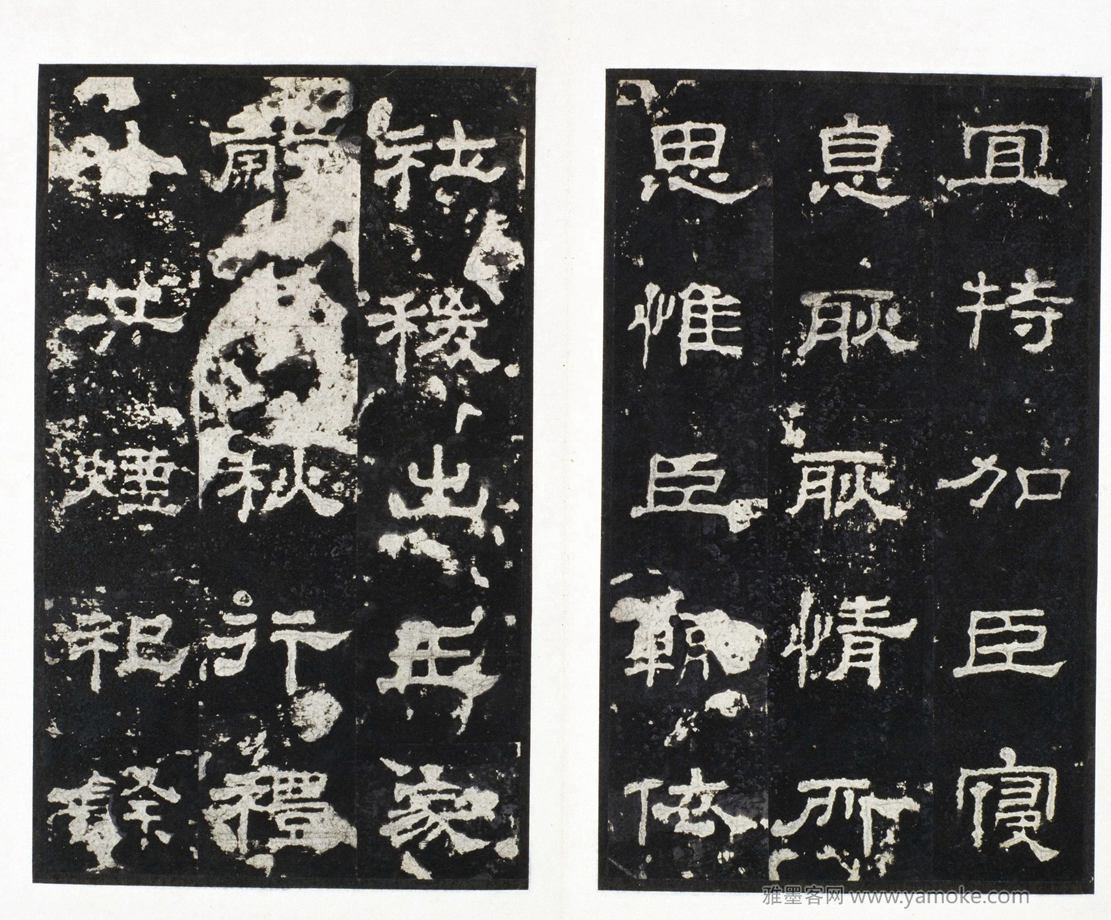 宜特加臣寑
息耿耿情所
思惟臣輒依
社稷出王家
穀秋行禮
以共煙祀餘
雅墨客网 www.yamoke.com